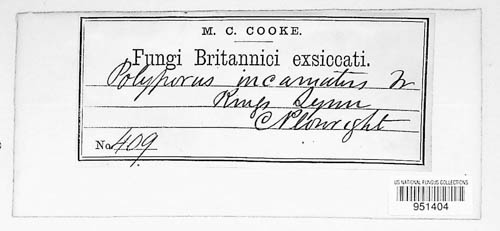 M. C. COOKE.
Fungi Britannici exsiccati.
Polyporus incarnatus Fr
Kings Lynn
C Plowright
No 409
US NATIONAL FUNGUS COLLECTIONS
951404